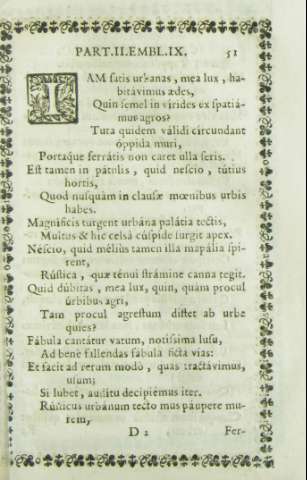 PART.II.EMBL.IX. 51
IAM satis urbanas, mea lux, ha-
bitávimus ædes,
Quin semel in virides ex spatiá-
mur agros?
Tuta quidem válidi circundant
óppida muri,
Portaque ferrátis non caret ulla seris.
Est tamen in pátulis, quid nescio, tútius
hortis,
Quod nusquàm in clausæ mœnibus urbis
habes.
Magníficis turgent urbána palátia tectis,
Multus & hîc celsâ cúspide surgit apex.
Néscio, quid méliùs tamen illa mapália spi-
rent,
Rústica, quæ ténui strámine canna tegit.
Quid dúbitas, mea lux, quin, quàm procul
úrbibus agri,
Tam procul agrestum distet ab urbe
quies?
Fábula cantátur vatum, notíssima lusu,
Ad benè fallendas fabula ficta vias:
Et facit ad rerum modò, quas tractávimus,
usum;
Si lubet, audítu decipiémus iter.
Rústicus urbánum tecto mus páupere mu-
rem,
D 2 Fer-